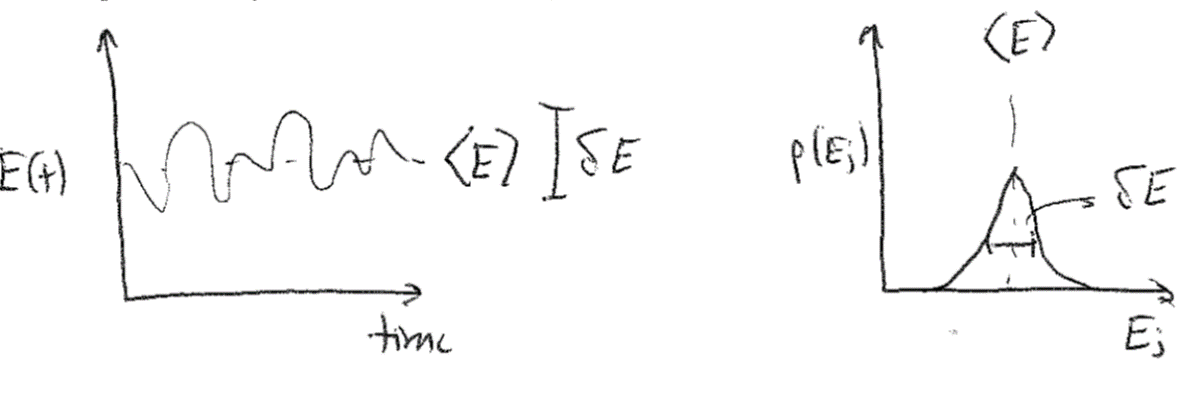 E(t)
⟨E⟩ δE
time
⟨E⟩
p(Ej)
δE
Ej